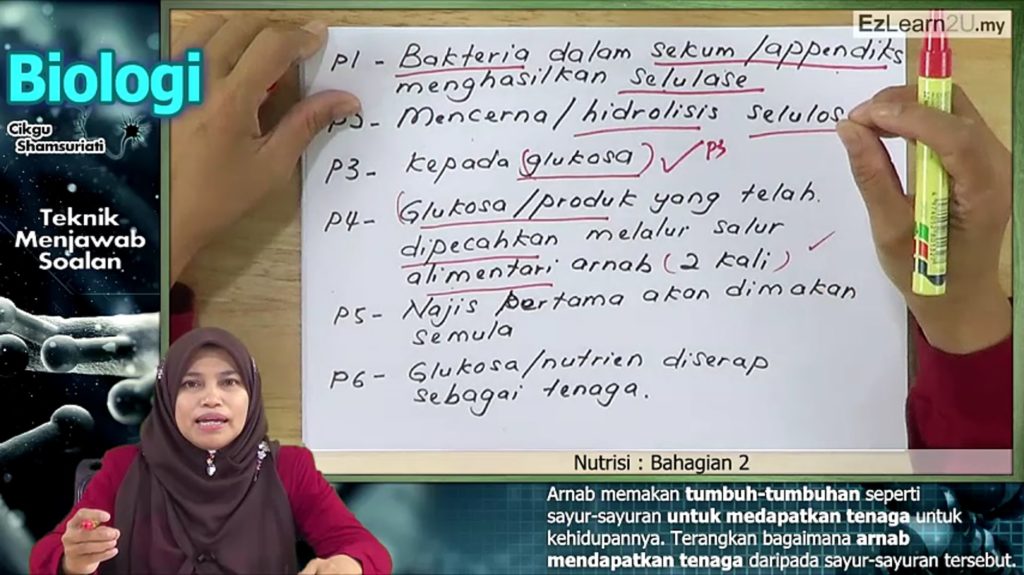 EzLearn2U.my
Biologi
Cikgu
Shamsuriati
Teknik
Menjawab
Soalan
P1 - Bakteria dalam sekum/appendiks
menghasilkan selulase
Mencerna/hidrolisis
P3 - kepada (glukosa) ✓ P3
P4 - (Glukosa/produk yang telah.
dipecahkan melalui salur
alimentari arnab (2 kali) ✓
P5 - Najis pertama akan dimakan
semula
P6 - Glukosa/nutrien diserap
sebagai tenaga.
Nutrisi : Bahagian 2
Arnab memakan tumbuh-tumbuhan seperti
sayur-sayuran untuk medapatkan tenaga untuk
kehidupannya. Terangkan bagaimana arnab
mendapatkan tenaga daripada sayur-sayuran tersebut.